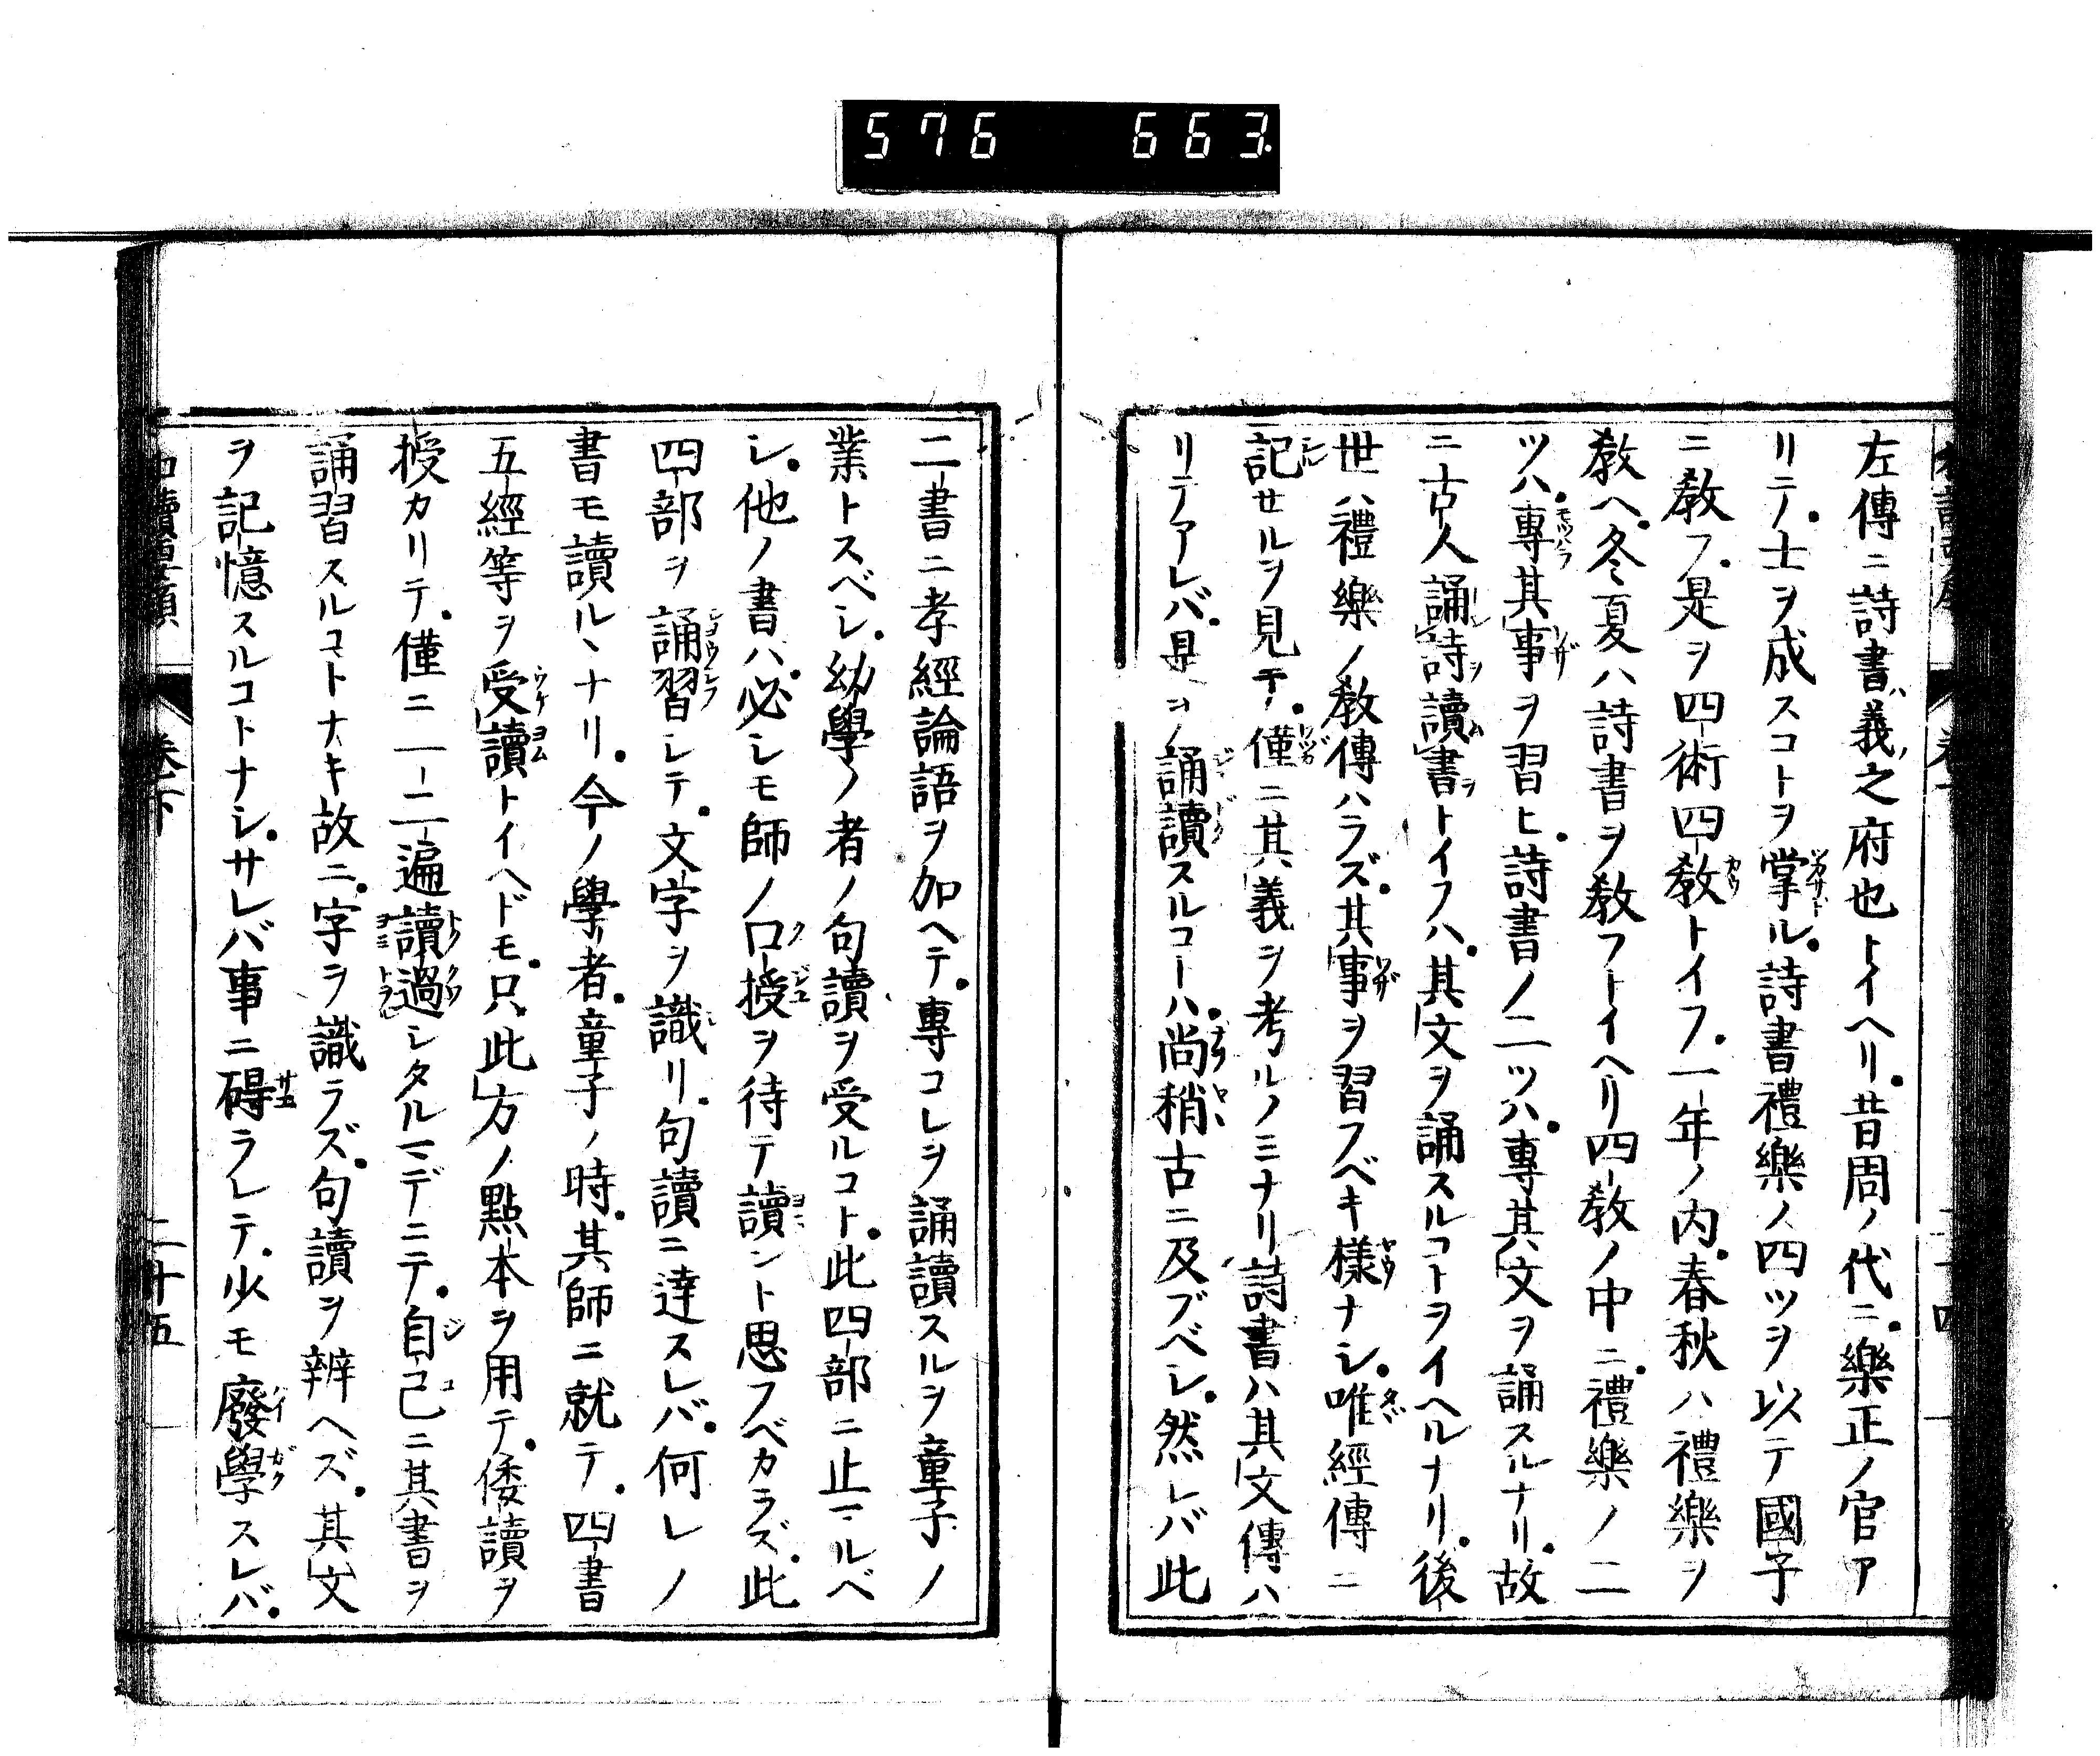 576 663
左傳ニ詩書ハ義ノ之府也トイヘリ昔周ノ代ニ樂正ノ官ア
リテ士ヲ成スコトヲ掌ル詩書禮樂ノ四ツヲ以テ國子
ニ敎フ是ヲ四術四敎トイフ一年ノ内春秋ハ禮樂ヲ
敎ヘ冬夏ハ詩書ヲ敎フトイヘリ四敎ノ中ニ禮樂ノ二
ツハ專其事ヲ習ヒ詩書ノ二ツハ專其文ヲ誦スルナリ故
ニ古人誦詩讀書トイフハ其文ヲ誦スルコトヲイヘルナリ後
世ハ禮樂ノ敎傳ハラズ其事ヲ習フベキ樣ナシ唯經傳ニ
記セルヲ見テ僅ニ其義ヲ考ルノミナリ詩書ハ其文傳ハ
リテアレバ是ヲ誦讀スルコトハ尚稍古ニ及ブベシ然レバ此
二書ニ孝經論語ヲ加ヘテ專コレヲ誦讀スルヲ童子ノ
業トスベシ幼學ノ者ノ句讀ヲ受ルコト此四部ニ止マルベ
シ他ノ書ハ必シモ師ノ口授ヲ待テ讀ント思フベカラズ此
四部ヲ誦習シテ文字ヲ識リ句讀ニ達スレバ何レノ
書モ讀ルヽナリ今ノ學者童子ノ時其師ニ就テ四書
五經等ヲ受讀トイヘドモ只此方ノ點本ヲ用テ倭讀ヲ
授カリテ僅ニ一二遍讀過シタルマデニテ自己ニ其書ヲ
誦習スルコトナキ故ニ字ヲ識ラズ句讀ヲ辨ヘズ其文
ヲ記憶スルコトナシサレバ事ニ碍ラレテ少モ廢學スレバ
卷下
二十五